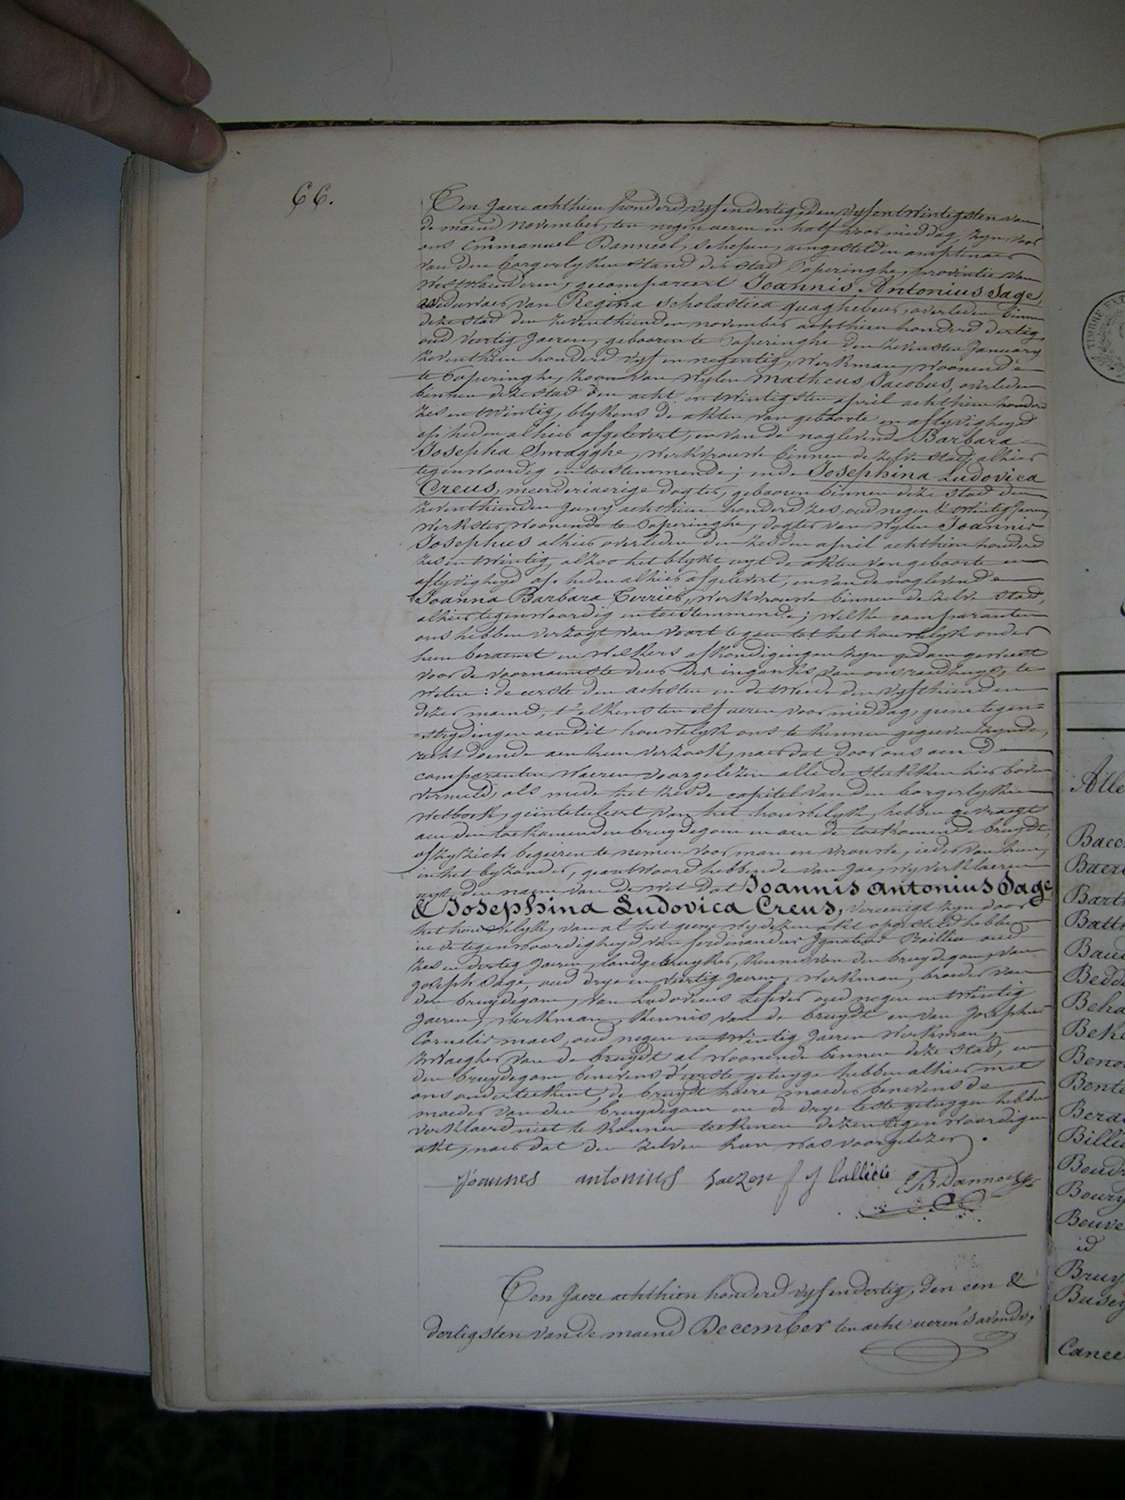 66.
Ten Jaere achthien honderd vyf en dertig, den vyfentwintigsten van
de maend November, ten negen ueren en half voor middag, zyn voor
ons Emmanuel Banneel, Schepen, aengesteld en amptenaer
van den Borgerlyken stand der stad Poperinghe, provintie van
Westvlaenderen, gecompareert Joannis Antonius Sage,
weduwaer van Regina Scholastica Quaghebeur, overleden binnen
deze stad den zeventhienden november achthien honderd dertig,
oud veertig Jaeren, gebooren te Poperinghe den zevensten January
zeventhien honderd vyf en negentig, werkman, woonende
te Poperinghe, zoon van wylen Matheus Jacobus, overleden
binnen deze stad den acht en twintigsten april achthien honderd
zes en twintig, blykens de akten van geboorte en aflyvigheyd
op heden alhier afgelevert, en van de noglevende Barbara
Josepha Smagghe, werkvrouwe binnen de zelve stad, alhier
tegenwoordig en toestemmende; en de Josephina Ludovica
Creus, meerderjaerige dogter, gebooren binnen deze stad den
zeventhienden Juny achthien honderd zes, oud negen & twintig Jaeren,
werkster, woonende te Poperinghe, dogter van wylen Joannis
Josephus alhier overleden den zesden april achthien honderd
zes en twintig, alzoo het blykt uyt de akten van geboorte en
aflyvigheyd op heden alhier afgelevert, en van de noglevende
Joanna Barbara Terrier, werkvrouwe binnen de zelve stad,
alhier tegenwoordig en toestemmende; welke comparanten
ons hebben verzogt van voort te gaen tot het houwelyk onder
hun beraemt en welkers afkondigingen zyn gedaen geweest
voor de voornaemste deur der ingank van ons raedhuys, te
weten: de eerste den achsten en de tweede den vyfthienden
dezer maend, t'elkens ten elf ueren voor middag, geene tegen-
strydingen aen dit houwelyk ons te kennen gegeven zynde,
recht doende aen hun verzoek, naer dat door ons aen de
comparanten waeren voorgelezen alle de stukken hier boven
vermeld, als mede het zesde capitel van den borgerlyken
wetboek, geintituleert van het houwelyk, hebben gevraegt
aen den toekomenden bruydegom en aen de toekomende bruydt,
of zy zich begeeren te nemen voor man en vrouwe, ieder van hun,
in het byzonder, geantwoord hebbende van Jae, wy verklaeren
uyt den naem van de wet dat Joannis Antonius Sage
& Josephina Ludovica Creus, vereenigt zyn door
het houwelyk, van al het geene wy dezen akt opgesteld hebben
in de tegenwoordigheyd van ferdinandus Ignatius Baillieu oud
zes en dertig Jaeren, landgebruyker, kennis van den bruydegom, van
Joseph Sage, oud drye en veertig Jaeren, werkman, broeder van
den bruydegom, van Ludovicus Lefever oud negen en twintig
Jaeren, werkman, kennis van de bruydt en van Josephus
Cornelis maes, oud negen en twintig Jaeren werkman,
Zwaegher van de bruydt al woonende binnen deze stad, en
den bruydegom benevens d'eerste getuyge hebben alhier met
ons onderteekent, de bruydt haere moeder benevens de
moeder van den bruydegom en de drye leste getuygen hebben
verklaerd niet te konnen teekenen dezen tegenwoordigen
akt, naer dat den zelven hun was voorgelezen.
Joannes antonius saezen f J Baillieu EBanneel
Ten Jaere achthien honderd vyf en dertig, den een &
dertigsten van de maend December ten acht ueren 's avonds,
TIMBRE
Alle
Baeco
Baere
Barte
Batte
Baud
Bedd
Beha
Beke
Beno
Bente
Bera
Billi
Boud
Boury
Bouve
id
Bruy
Busey
Cance